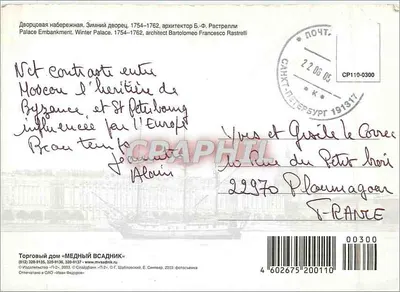 Дворцовая набережная. Зимний дворец. 1754–1762, архитектор Б.-Ф. Растрелли
Palace Embankment. Winter Palace. 1754–1762, architect Bartolomeo Francesco Rastrelli
Net contraste entre
Moscou l'héritière de
Byzance et St Petersbourg
influencée par l'Europe
Beau temps
Jeannette
Alain
ПОЧТ
22 06 05
САНКТ-ПЕТЕРБУРГ 191317
CP110-0300
Yves et Gisèle Le Correc
10 Rue du Petit bois
22970 Ploumagoar
FRANCE
CRAPHTIL
Торговый дом «МЕДНЫЙ ВСАДНИК»
www.mvsadnik.ru
00300
4 602675 200110